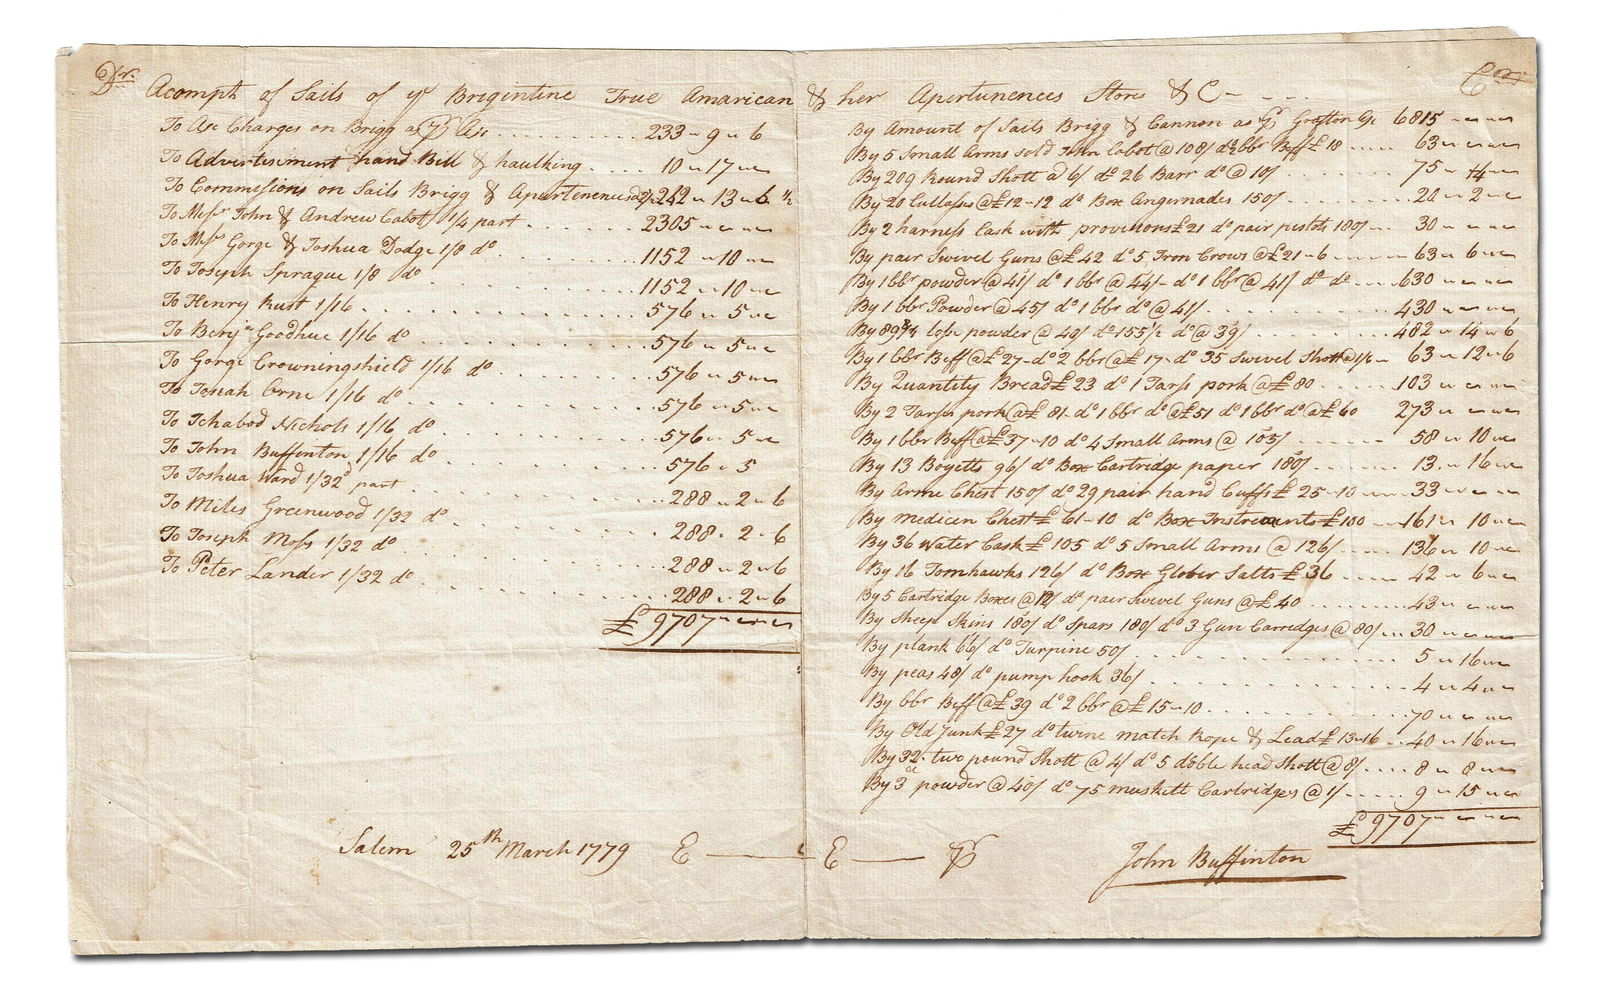 Dr. Acompt of Sails of ye Brigintine True Amarican & her Apertunences Stores & C Cr
To Ac Charges on Brigg as Pr Ac 233 - 9 - 6
To Advertisment hand Bill & haulking 10 - 17
To Commisions on Sails Brigg & Apertenences 242 - 13 - 6 ½
To Messrs John & Andrew Cabot 1/4 part 2305
To Messrs Gorge & Joshua Dodge 1/8 do 1152 - 10
To Joseph Sprague 1/8 do 1152 - 10
To Henry Rust 1/16 576 - 5
To Benjn Goodhue 1/16 do 576 - 5
To Gorge Crowningshield 1/16 do 576 - 5
To Josiah Orne 1/16 do 576 - 5
To Ichabod Nichols 1/16 do 576 - 5
To John Buffinton 1/16 do 576 - 5
To Joshua Ward 1/32d part 288 - 2 - 6
To Miles Greenwood 1/32 do 288 - 2 - 6
To Joseph Moss 1/32 do 288 - 2 - 6
To Peter Lander 1/32 do 288 - 2 - 6
£9707
By Amount of Sails Brigg & Cannon as Pr Grafton 6815
By 5 Small Arms sold John Cabot @ 108/ do 2 bbr Beff £18 63
By 209 Round Shott @ 6/ do 26 Barr do @ 10/ 75 - 14
By 20 Cutlasses @ £12-12 do Box Angernades 150/ 20 - 2
By 2 harness Cask with provisions £21 do pair pistols 180/ 30
By pair Swivel Guns @ £42 do 5 Iron Crows @ £21-6 63 - 6
By 1 bbr powder @ 41/ do 1 bbr @ 44/ do 1 bbr @ 41/ do do 630
By 1 bbr Powder @ 45/ do 1 bbr do @ 41/ 430
By 89¾ lobs powder @ 40/ do 155½ do @ 39/ 482 - 14 - 6
By 1 bbr Beff @ £27 do 2 bbr @ £17 do 35 Swivel Shott @ 1/6 63 - 12 - 6
By Quantity Bread £23 do 1 Tarss pork @ £80 103
By 2 Tarss pork @ £81 do 1 bbr do @ £51 do 1 bbr do @ £60 273
By 1 bbr Beff @ £37-10 do 4 Small Arms @ 105/ 58 - 10
By 13 Bogetts 96/ do Box Cartridge paper 180/ 13 - 16
By Arme Chest 150/ do 29 pair hand Cuffs £25-10 33
By medicen Chest £61-10 do Box Instrements £100 161 - 10
By 36 Water Cask £105 do 5 Small Arms @ 126/ 136 - 10
By 16 Tomhawks 126/ do Box Glober Salts £36 42 - 6
By 5 Cartridge Boxes @ 12/ do pair Swivel Guns @ £40 43
By Sheep Skins 180/ do Spars 180/ do 3 Gun Carridges @ 80/ 30
By plank 66/ do Turpine 50/ 5 - 16
By peas 48/ do pump hook 36/ 4 - 4
By bbr Beff @ £39 do 2 bbr @ £15-10 70
By Old Junk £27 do twine match Rope & Lead £13-16 40 - 16
By 32 two pound Shott @ 4/ do 5 doble head Shott @ 8/ 8 - 8
By 3 powder @ 40/ do 75 muskett Cartridges @ 1/ 9 - 15
£9707
Salem 25th March 1779 E E Pr John Buffinton